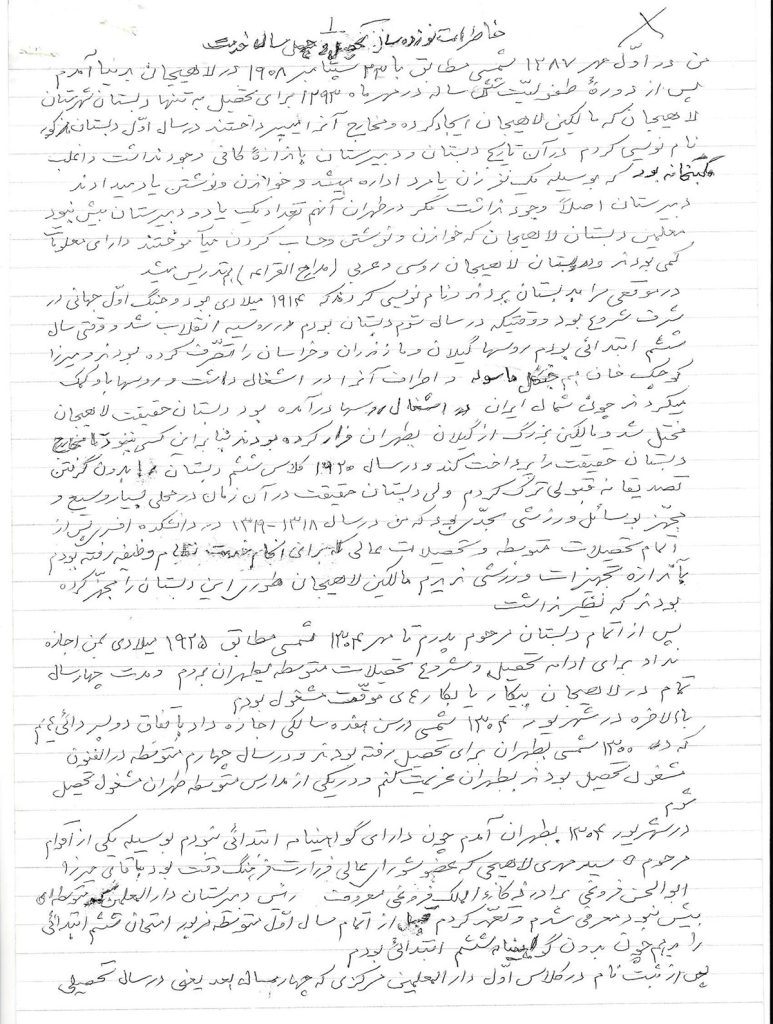 ۱
خاطرات نوزده سال تحصیل و چهل سال خدمت
من در اوّل مهر ۱۲۸۷ شمسی مطابق با ۲۳ سپتامبر ۱۹۰۸ در لاهیجان بدنیا آمدم
پس از دورهٔ طفولیّت شش ساله در مهر ماه ۱۲۹۳ برای تحصیل به تنها دبستان شهرستان
لاهیجان که مالکین لاهیجان ایجاد کرده و مخارج آنرا میپرداختند در سال اوّل دبستان مذکور
نام نویسی کردم در آن تاریخ دبستان و دبیرستان باندازهٔ کافی وجود نداشت و اغلب
مکتبخانه بود که بوسیله یک نفر زن یا مرد اداره میشد و خواندن و نوشتن یاد میدادند
دبیرستان اصلاً وجود نداشت مگر در طهران آنهم تعداد یک یا دو دبیرستان بیش نبود
معلمین دبستان لاهیجان که خواندن و نوشتن و حساب کردن میآموختند دارای معلومات
کمی بودند و در دبستان لاهیجان روسی و عربی (مدارج القراءه) هم تدریس میشد
در موقعی مرا به دبستان بردند و نام نویسی کردند که ۱۹۱۴ میلادی بود و جنگ اوّل جهانی در
شرف شروع بود و وقتیکه در سال سوّم دبستان بودم در روسیه انقلاب شد و وقتی سال
ششم ابتدائی بودم روسها گیلان و مازندران و خراسان را تصّرف کرده بودند و میرزا
کوچک خان هم جنگل ماسوله و اطراف آنرا در اشغال داشت و روسها باو کمک
میکردند چون شمال ایران به اشغال روسها درآمده بود دبستان حقیقت لاهیجان
مختل شد و مالکین بزرگ از گیلان بطهران فرار کرده بودند بنابراین کسی نبود تا مخارج
دبستان حقیقت را پرداخت کند و در سال ۱۹۲۰ کلاس ششم دبستان را بدون گرفتن
تصدیقنامه قبولی ترک کردم ولی دبستان حقیقت در آن زمان در محلی بسیار وسیع و
مجهّز بوسائل ورزشی مجدّی بود که من در سال ۱۳۱۸-۱۳۱۹ در دانشکده افسری پس از
اتمام تحصیلات متوسطه و تحصیلات عالی که برای انجام خدمت نظام وظیفه رفته بودم
باندازه تجهیزات ورزشی ندیدم مالکین لاهیجان طوری این دبستان را مجهّز کرده
بودند که نظیر نداشت
پس از اتمام دبستان مرحوم پدرم تا مهر ۱۳۰۴ شمسی مطابق ۱۹۲۵ میلادی بمن اجازه
نداد برای ادامه تحصیل و شروع تحصیلات متوسطه بطهران بروم و مدت چهار سال
تمام در لاهیجان بیکار یا بکارهای موقّت مشغول بودم
بالاخره در شهریور ۱۳۰۴ شمسی در سن هفده سالگی اجازه داد باتفاق دو پسر دائی هایم
که در ۱۳۰۰ شمسی بطهران برای تحصیل رفته بودند و در سال چهارم متوسطه دارالفنون
مشغول تحصیل بودند بطهران عزیمت کنم و در یکی از مدارس متوسطه طهران مشغول تحصیل
شوم
در شهریور ۱۳۰۴ بطهران آمدم چون دارای گواهینامه ابتدائی نبودم بوسیله یکی از اقوام
مرحوم سید مهدی لاهیجی که عضو شورای عالی وزارت فرهنگ وقت بود بآقای میرزا
ابوالحسن فروغی برادر ذکاءالملک فروغی معروف رئیس دبیرستان دارالمعلمین که متوسطه ای
بیش نبود معرفی شدم و تعهد کردم قبل از اتمام سال اوّل متوسطه مزبور امتحان ششم ابتدائی
را بدهم چون بدون گواهینامه ششم ابتدائی بودم
پس از ثبت نام در کلاس اوّل دارالمعلمین مرکزی که چهار سال بعد یعنی در سال تحصیلی